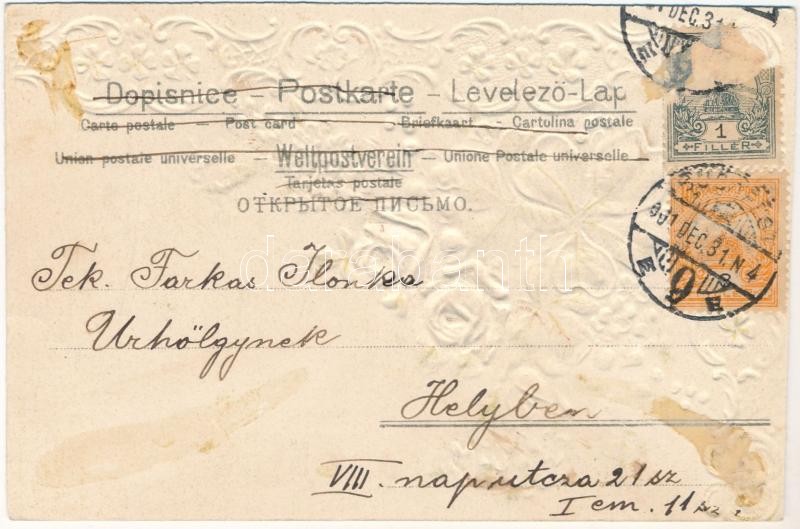 Dopisnice – Postkarte – Levelező-Lap
Carte postale – Post card – Briefkaart – Cartolina postale
Union postale universelle – Weltpostverein – Unione Postale universelle
Tarjetas postale
ОТКРЫТОЕ ПИСЬМО.
1
FILLÉR
901 DEC. 31. N 4
9
Tek. Farkas Ilonka
Urhölgynek
Helyben
VIII. nap utcza 21 sz
I em. 11 sz.
darabanth